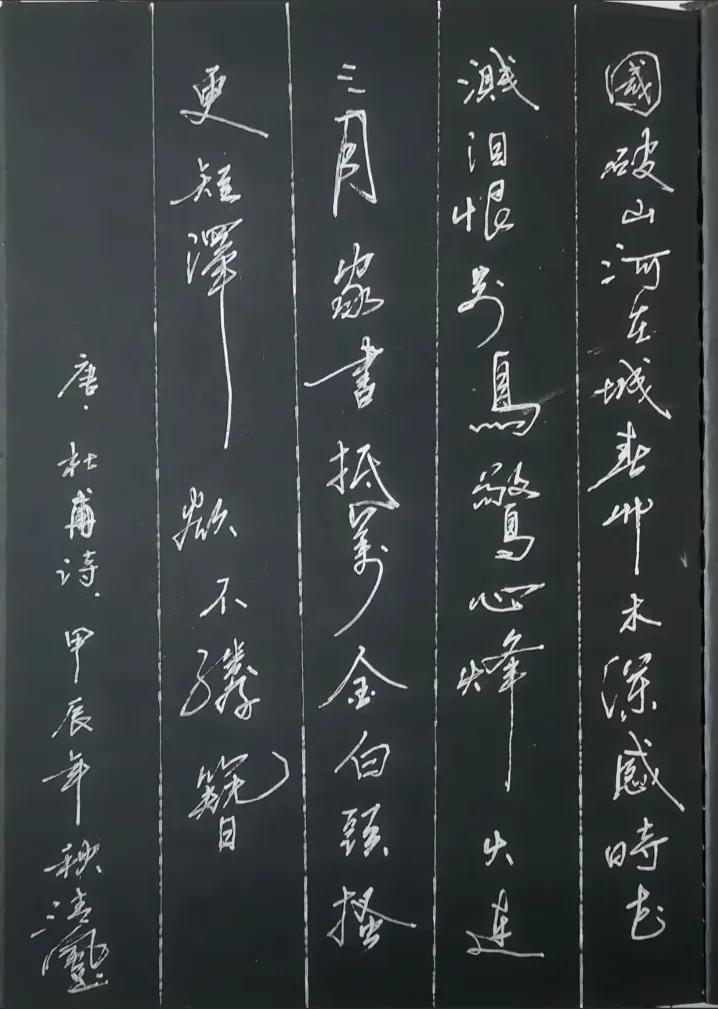 國破山河在城春艸木深感時花
濺泪恨别鳥驚心烽火連
三月家書抵萬金白頭搔
更短渾欲不勝簪
唐.杜甫诗.甲辰年秋清